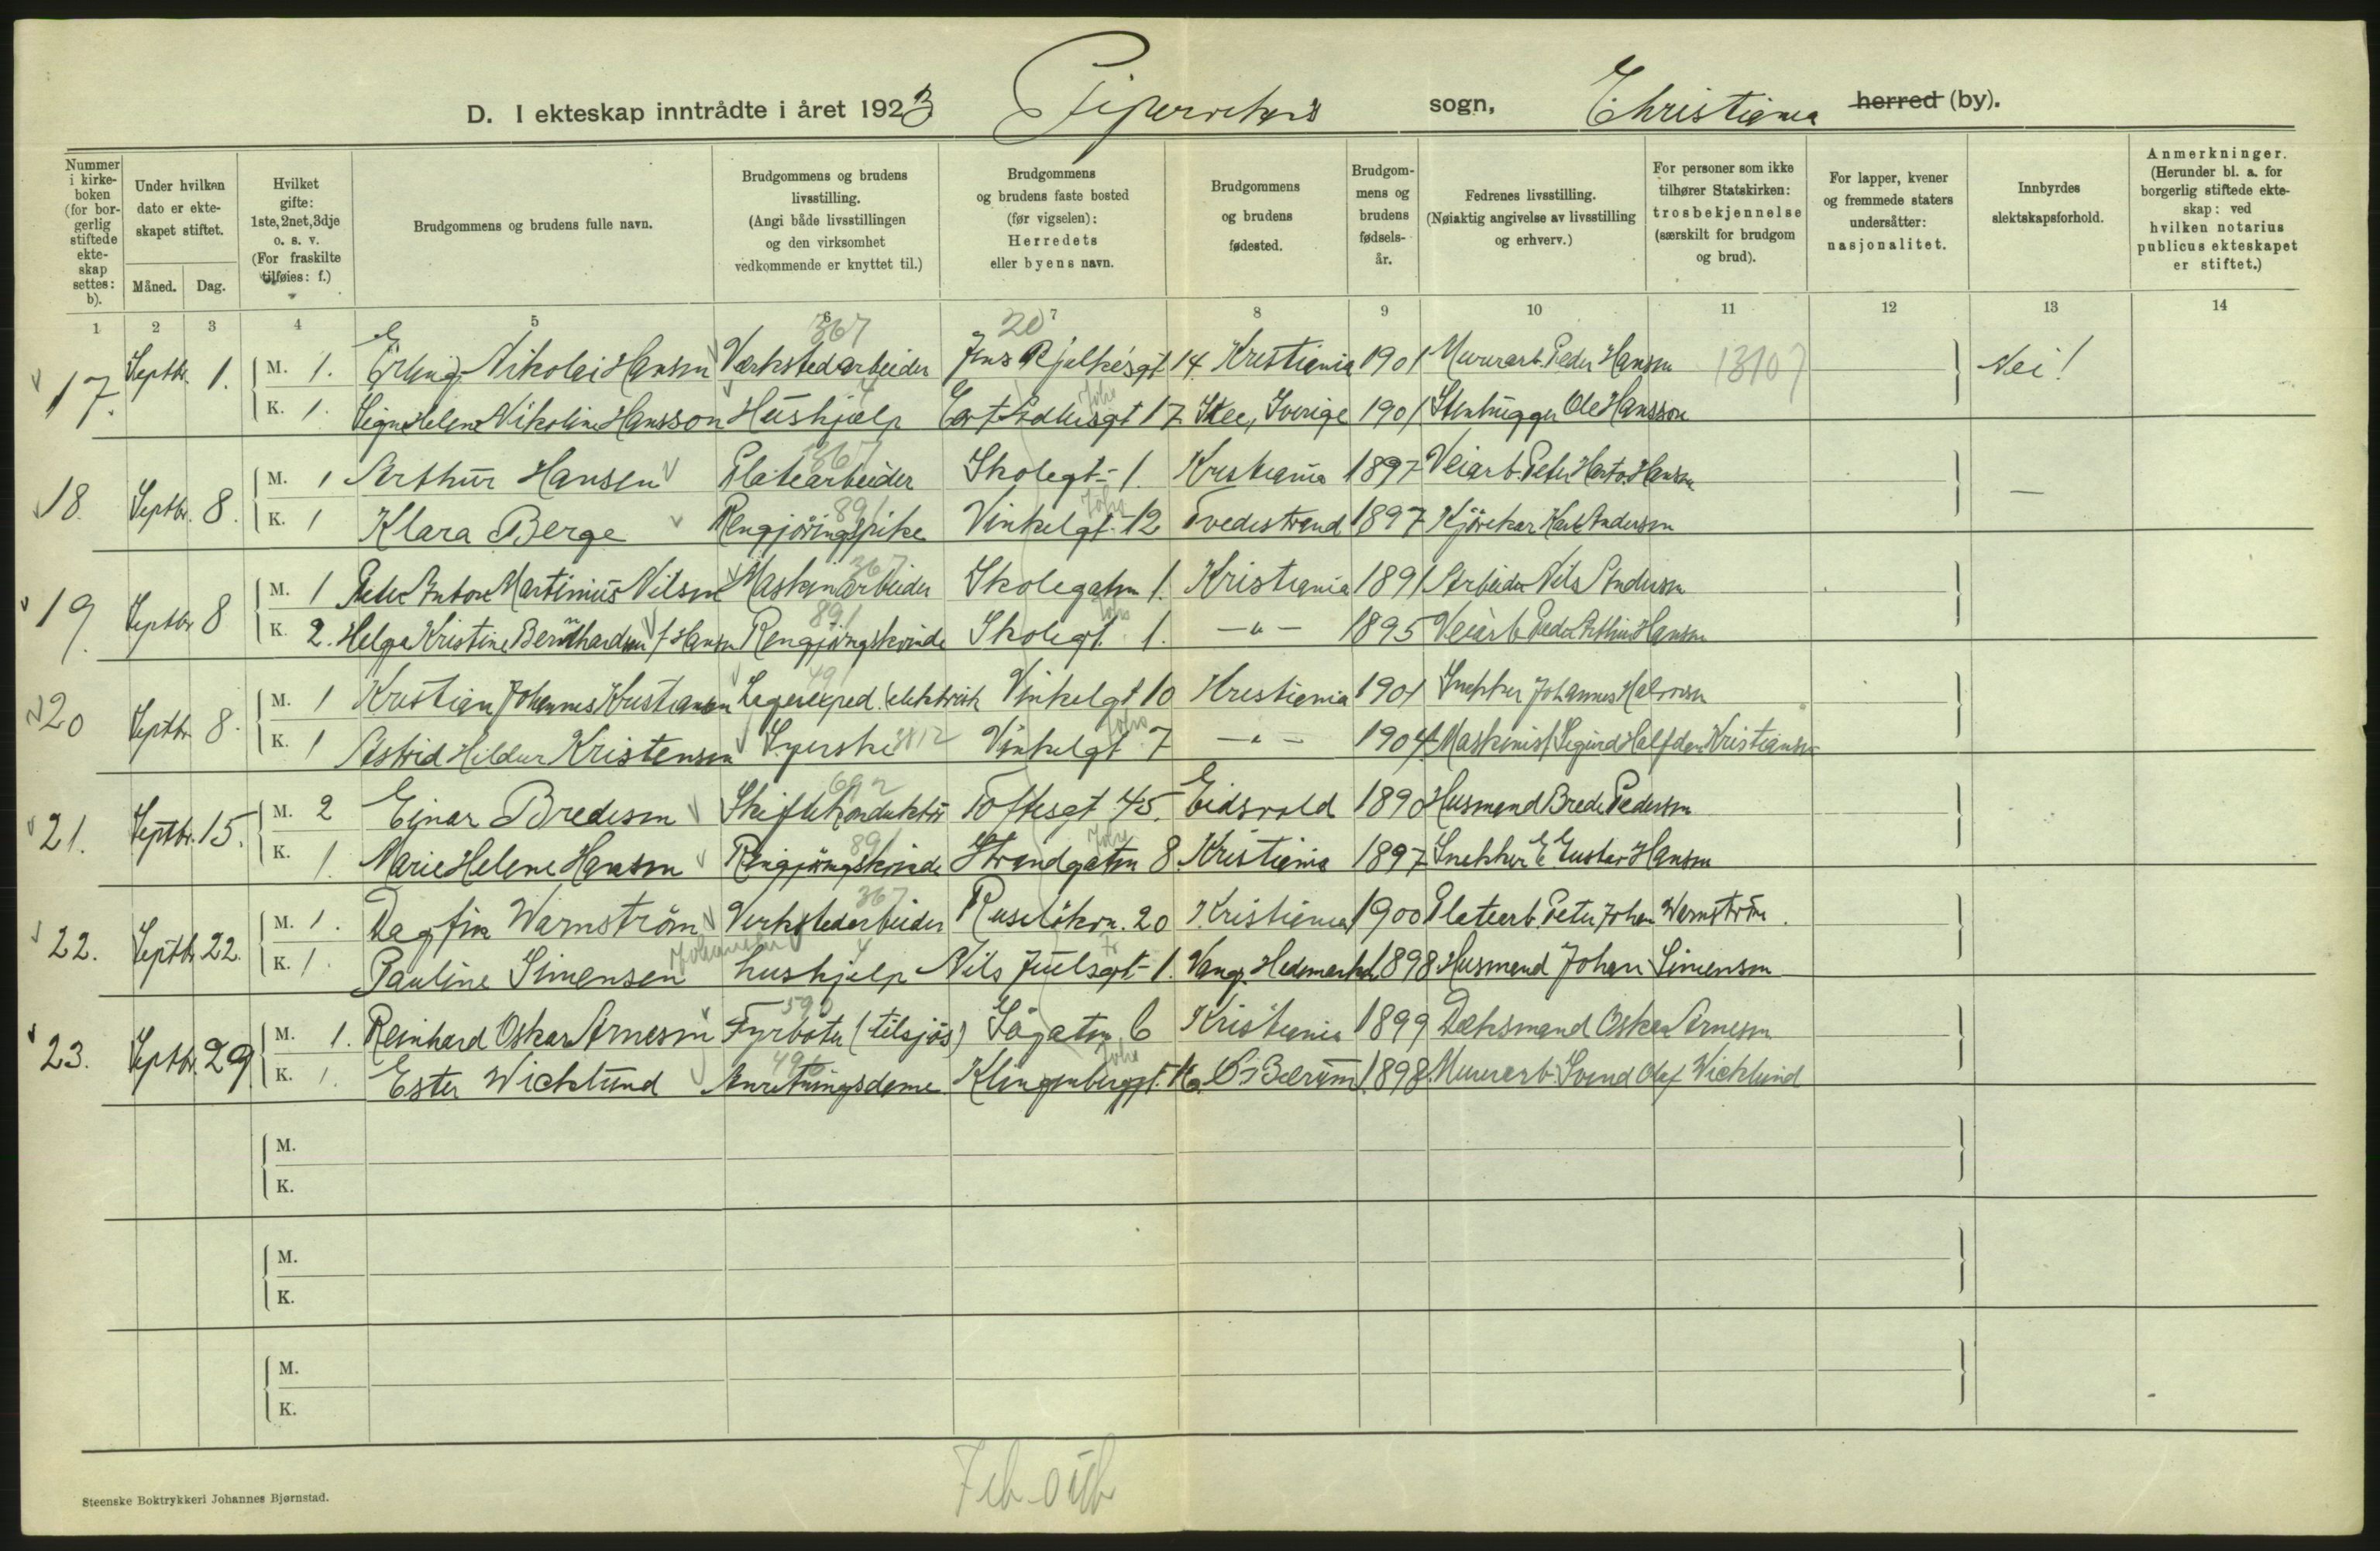 D. I ekteskap inntrådte i året 1923 sogn, Christiania herred (by).
Nummer i kirkeboken (for borgerlig stiftede ekteskap settes: b).
Under hvilken dato er ekteskapet stiftet.
Måned. Dag.
Hvilket gifte: 1ste, 2net, 3dje o. s. v. (For fraskilte tilføies: f.)
Brudgommens og brudens fulle navn.
Brudgommens og brudens livsstilling. (Angi både livsstillingen og den virksomhet vedkommende er knyttet til.)
Brudgommens og brudens faste bosted (før vigselen): Herredets eller byens navn.
Brudgommens og brudens fødested.
Brudgommens og brudens fødselsår.
Fedrenes livsstilling. (Nøiaktig angivelse av livsstilling og erhverv.)
For personer som ikke tilhører Statskirken: trosbekjennelse (særskilt for brudgom og brud).
For lapper, kvener og fremmede staters undersåtter: nasjonalitet.
Innbyrdes slektskapsforhold.
Anmerkninger. (Herunder bl. a. for borgerlig stiftede ekteskap: ved hvilken notarius publicus ekteskapet er stiftet.)
1 2 3 4 5 6 7 8 9 10 11 12 13 14
367 20
17. Septbr. 1. M. 1. Erling Nikolai Hansen Værkstedarbeider Jens Bjelkesgt 14. Kristiania 1901 Murerarb. Peder Hansen 13107 Nei!
K. 1. Signe Helene Nikoline Hansson Hushjælp 17 Skee, Sverige 1901 Stenhugger Ole Hansson
367
18. Septbr. 8. M. 1 Arthur Hansen Platearbeider Skolegt. 1. Kristiania 1897 Veiarb. Peter Hansen —
891
K. 1 Klara Berge Rengjöringspike Vinkelgt. 12 Tvedestrand 1897 Kjörekar Karl Andersen
367
19. Septbr 8 M. 1 Peder Anton Martinius Nilsen Maskinarbeider Skolegaten 1. Kristiania 1891 Arbeider Nils Andersen
891
K. 2. Helga Kristine Bernhardsen f. Hansen Rengjöringskvinde Skolegt. 1. —"— 1895 Veiarb. Peder Arthur Hansen
491
20 Septbr. 8. M. 1 Kristian Johannes Kristiansen Lagerexped. (elektrisk Vinkelgt 10 Kristiania 1901 Snekker Johannes
K. 1 Astrid Hildur Kristensen Syerske 3812 Vinkelgt 7 —"— 1904 Maskinist Sigurd Halfdan Kristiansen
692
21. Septbr. 15. M. 2 Einar Bredesen Skiftekonduktör Toftesgt 45. Eidsvold 1890 Husmand Brede Pedersen
891
K. 1. Marie Helene Hansen Rengjöringskvinde Strandgaten 8. Kristiania 1897 Snekker E. Gustav Hansen
367
22. Septbr. 22. M. 1. Dagfin Warnström Verkstedarbeider Ruselökvn. 20 Kristiania 1900 Platearb. Peter Johan Warnström.
Johannesen 4
K. 1. Pauline Simensen hushjelp Nils Juelsgt. 1. Vang, Hedemarken 1898 Husmand Johan Simensen
590
23. Septbr. 29 M. 1. Reinhard Oskar Arnesen Fyrböter (tilsjös) Kristiania 1899 Dæksmand Oskar Arnesen
496
K. 1. Ester Wicklund Anretningsdame Klingenberggt. Bærum 1898 Murerarb. Svend Olaf Wicklund
M.
K.
M.
K.
M.
K.
Steenske Boktrykkeri Johannes Bjørnstad.